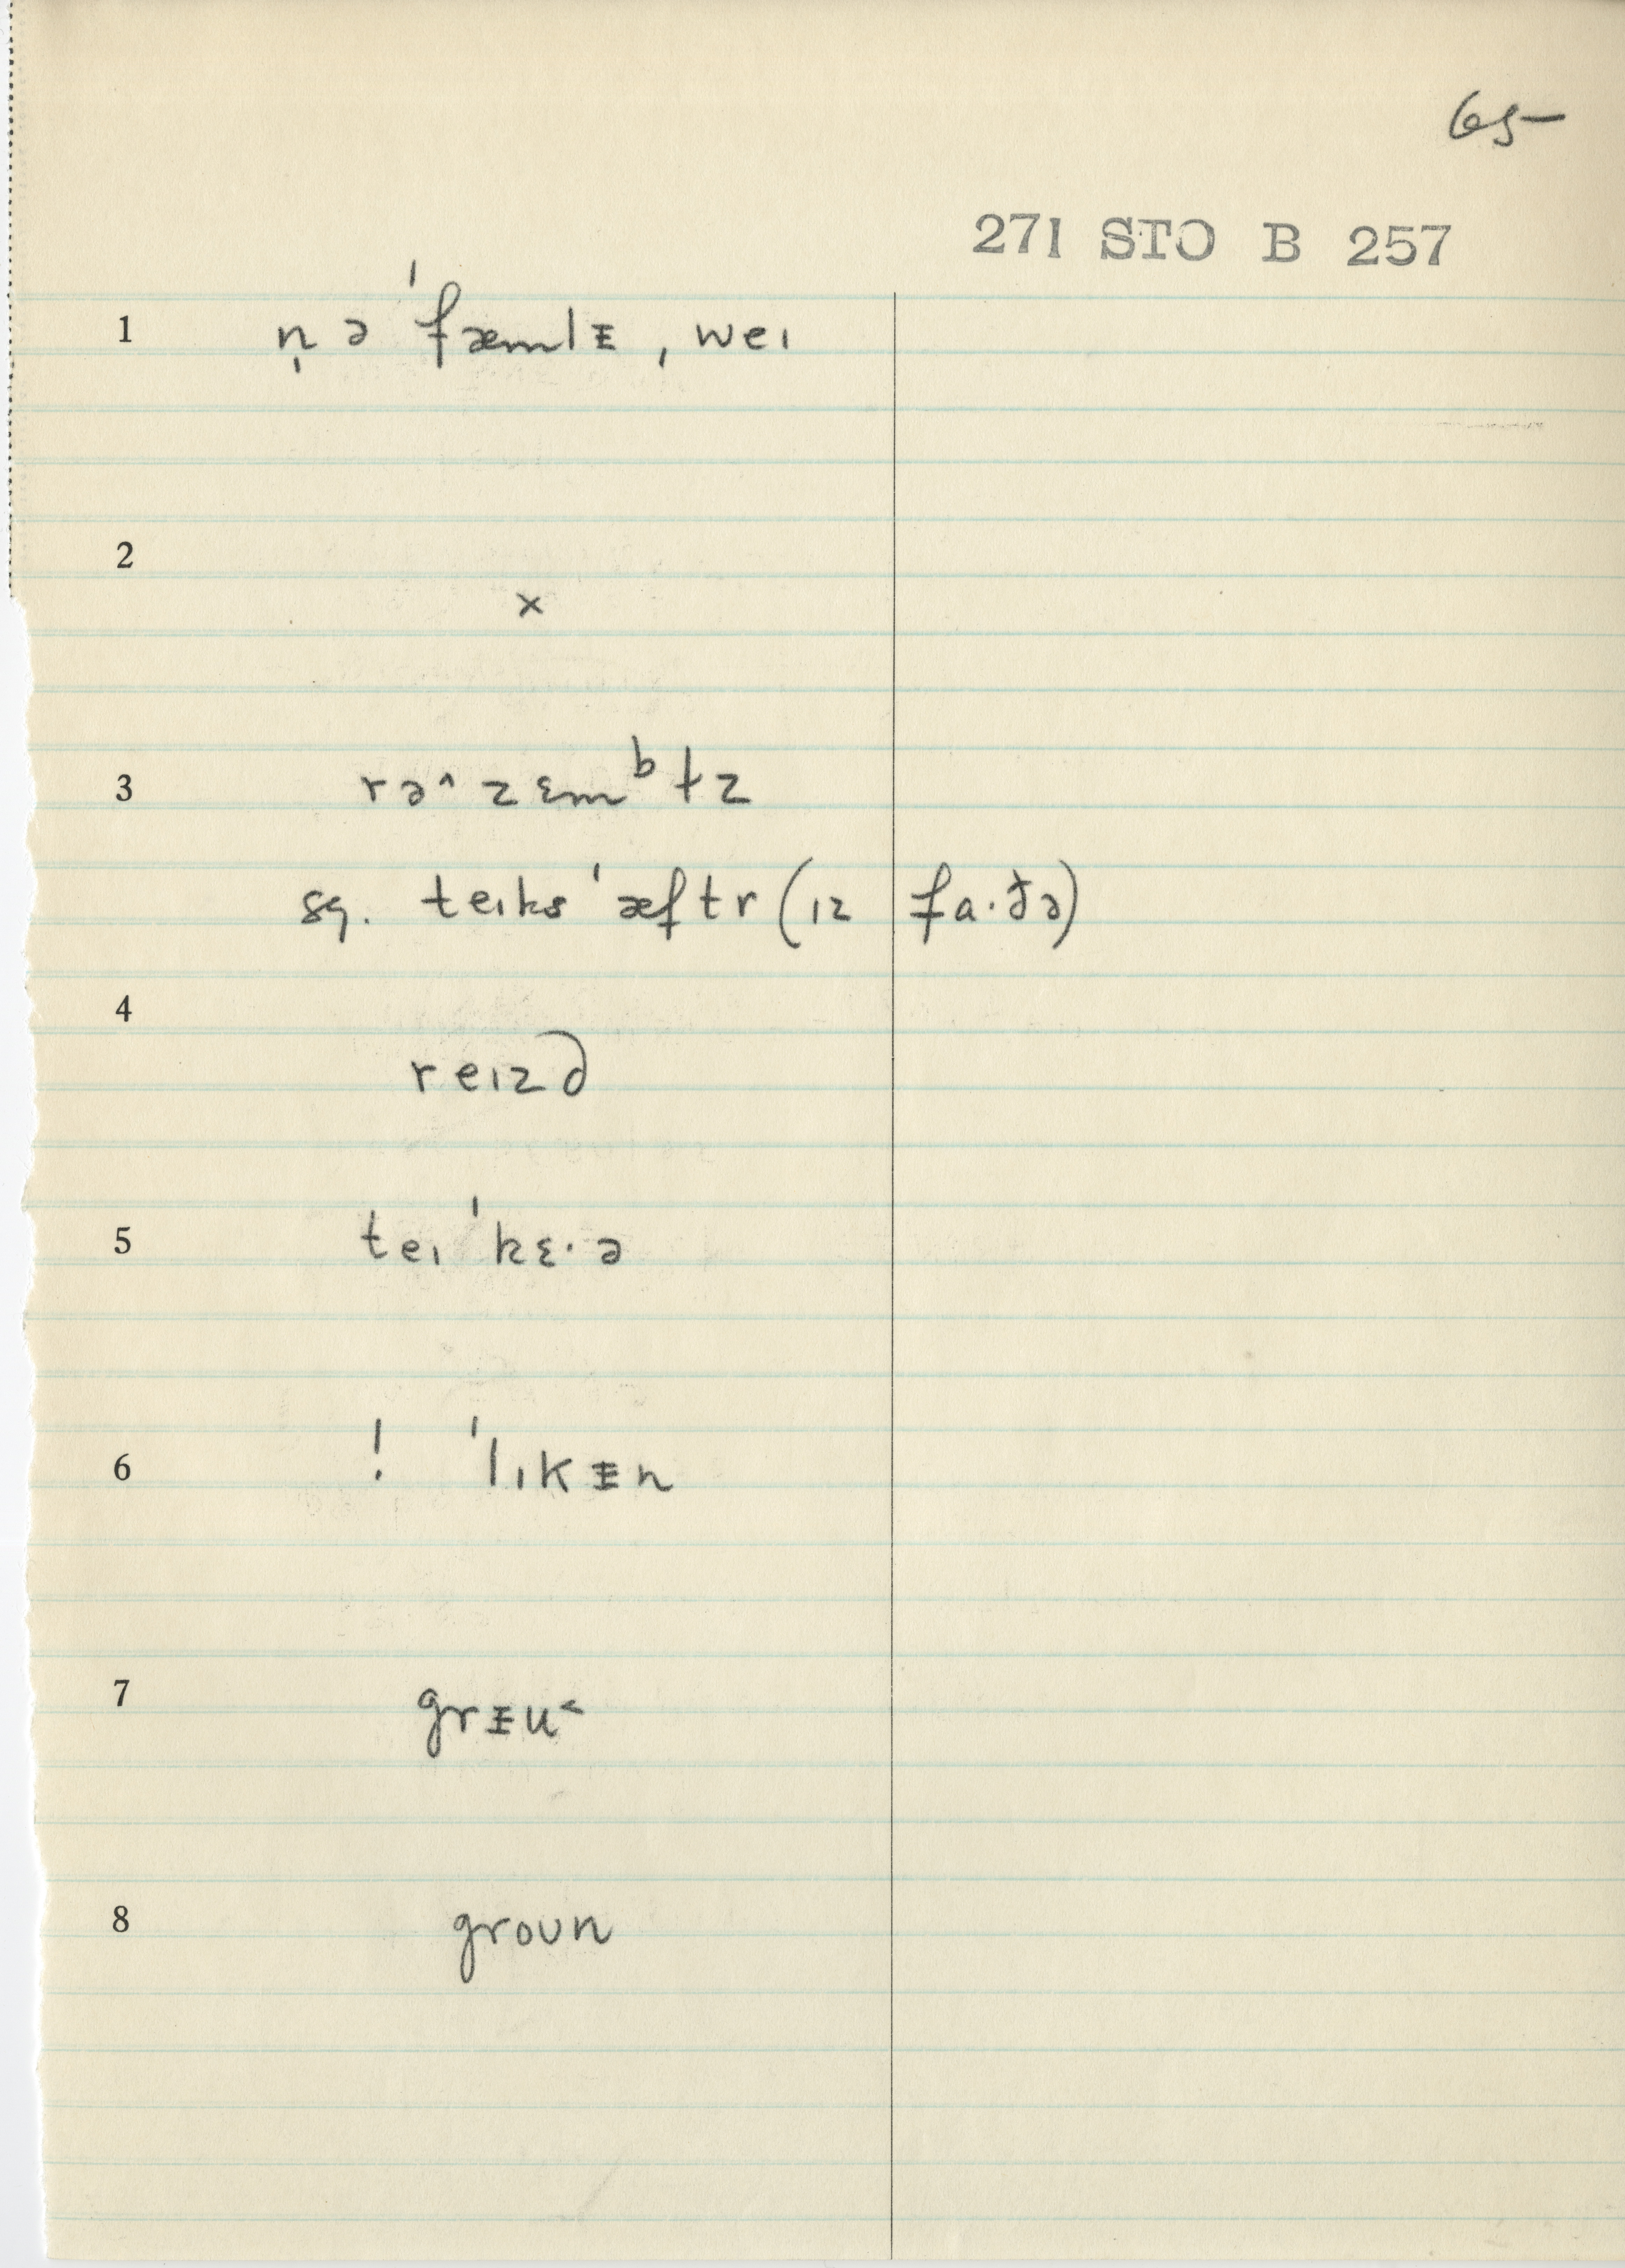 65
271 STO B 257
1 n̩ ə ˈfæmlᵻ, weɪ
2 ×
3 rə^ zɛmᵇɫz
sq. teɪks ˈæftr (ɪz fa·ðə)
4 reɪzd
5 teɪ ˈkɛ·ə
6 ! ˈlɪkᵻn
7 grᵻu<
8 groʊn